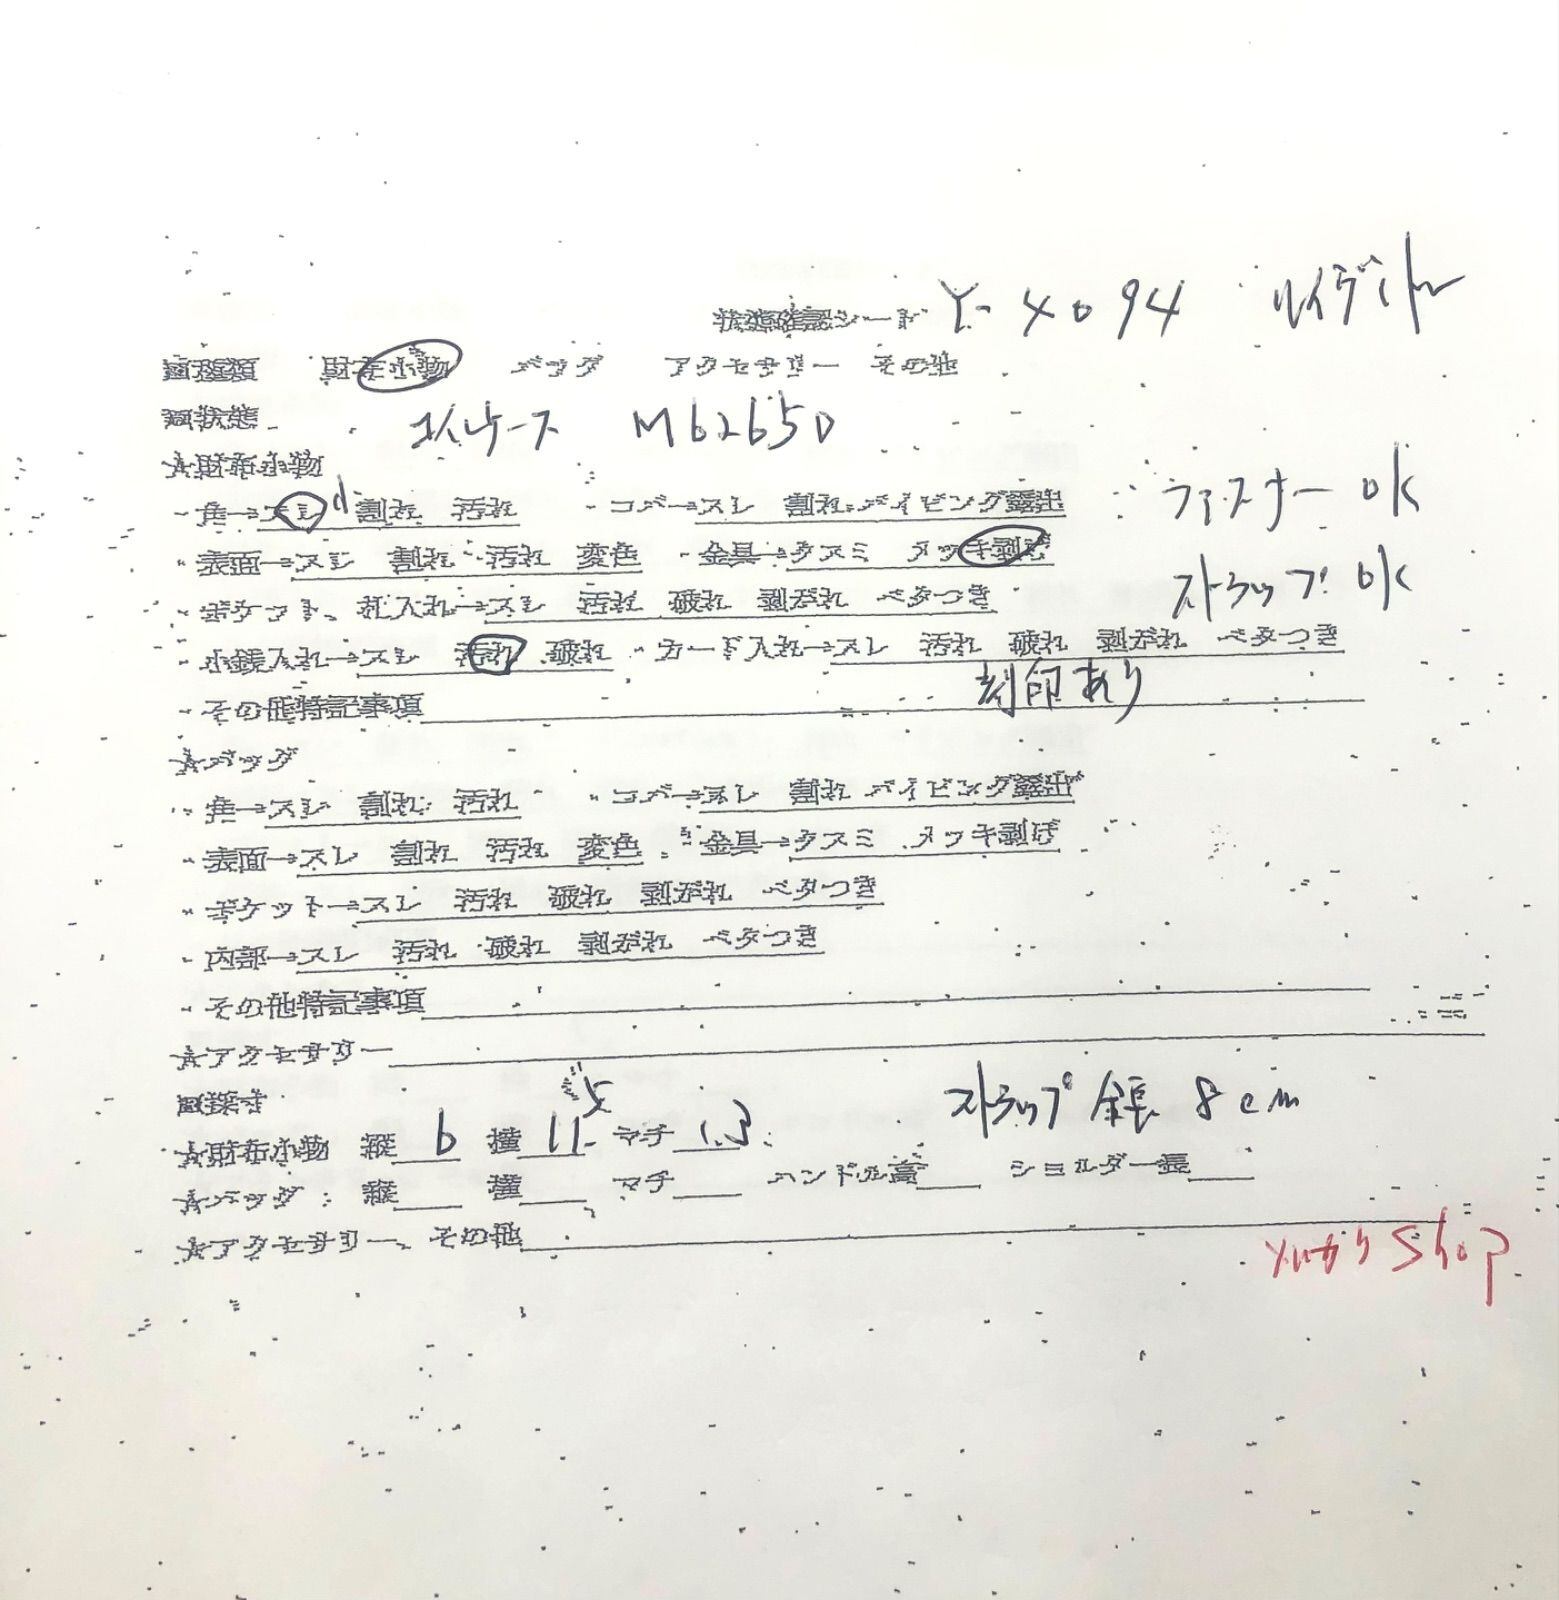 状態確認シート Y-4094 ルイヴィトン
■種類 財布小物 バッグ アクセサリー その他
■状態 コインケース M62650
★財布小物
・角→スレ 割れ 汚れ ・コバ→スレ 割れ パイピング露出 ファスナー OK
・表面→スレ 割れ 汚れ 変色 ・金具→クスミ メッキ剥げ
・ポケット、札入れ→スレ 汚れ 破れ 剥がれ ベタつき ストラップ OK
・小銭入れ→スレ 汚れ 破れ ・カード入れ→スレ 汚れ 破れ 剥がれ ベタつき
・その他特記事項 刻印あり
★バッグ
・角→スレ 割れ 汚れ ・コバ→スレ 割れ パイピング露出
・表面→スレ 割れ 汚れ 変色 ・金具→クスミ メッキ剥げ
・ポケット→スレ 汚れ 破れ 剥がれ ベタつき
・内部→スレ 汚れ 破れ 剥がれ ベタつき
・その他特記事項
★アクセサリー
■採寸 ストラップ 全長 8cm
★財布小物 縦 6 横 11.5 マチ 1.3
★バッグ 縦 横 マチ ハンドル高 ショルダー長
★アクセサリー、その他
Shop